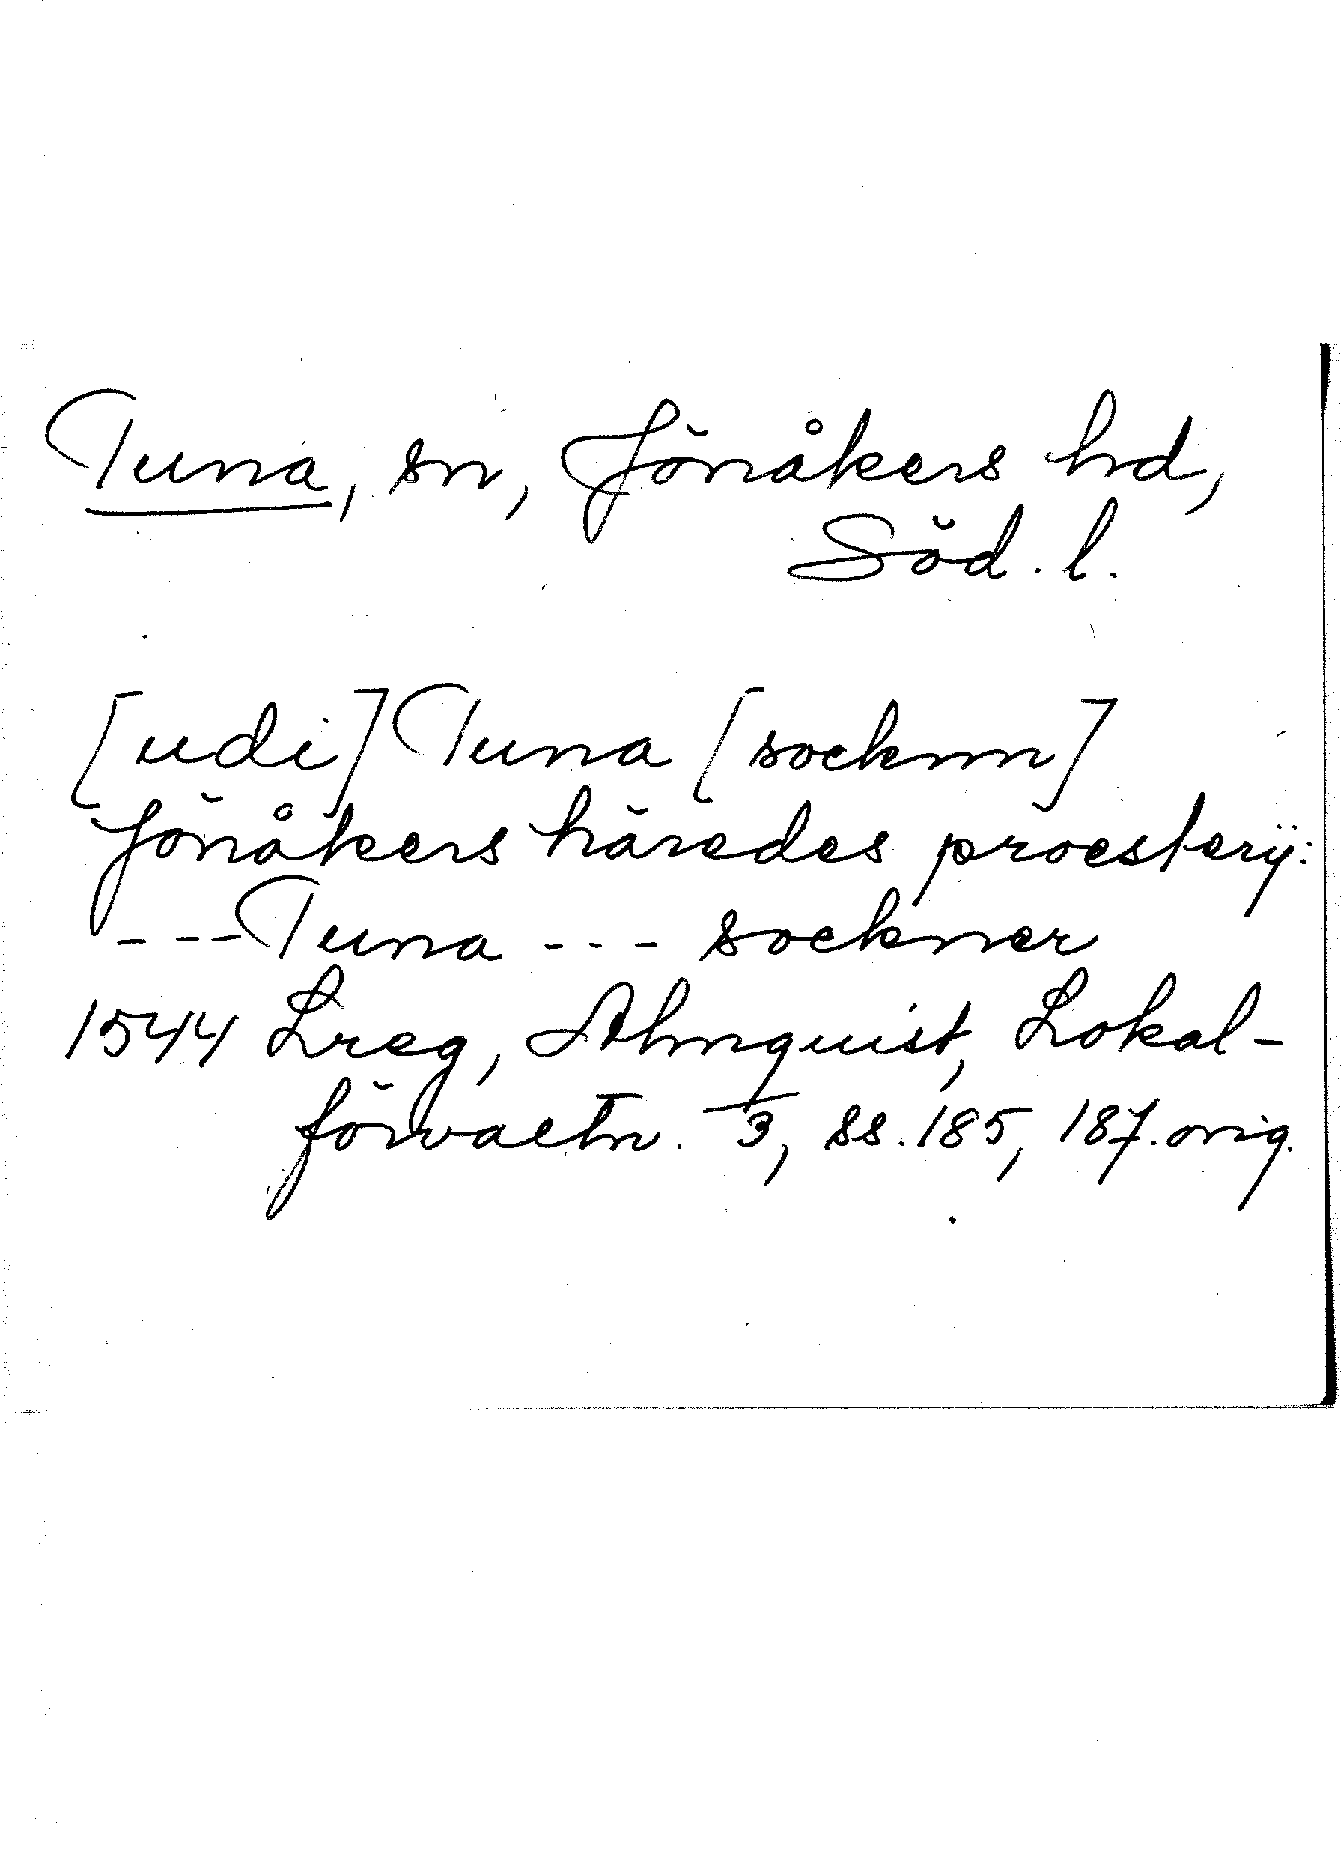 Tuna, sn, Jönåkers hd,
Söd. l.
[udi] Tuna [socknn]
Jönåkers häredes proesterij:
---Tuna --- sockner
1544 Lreg, Almquist, Lokal-
förvaltn. 3, ss. 185, 187. orig.